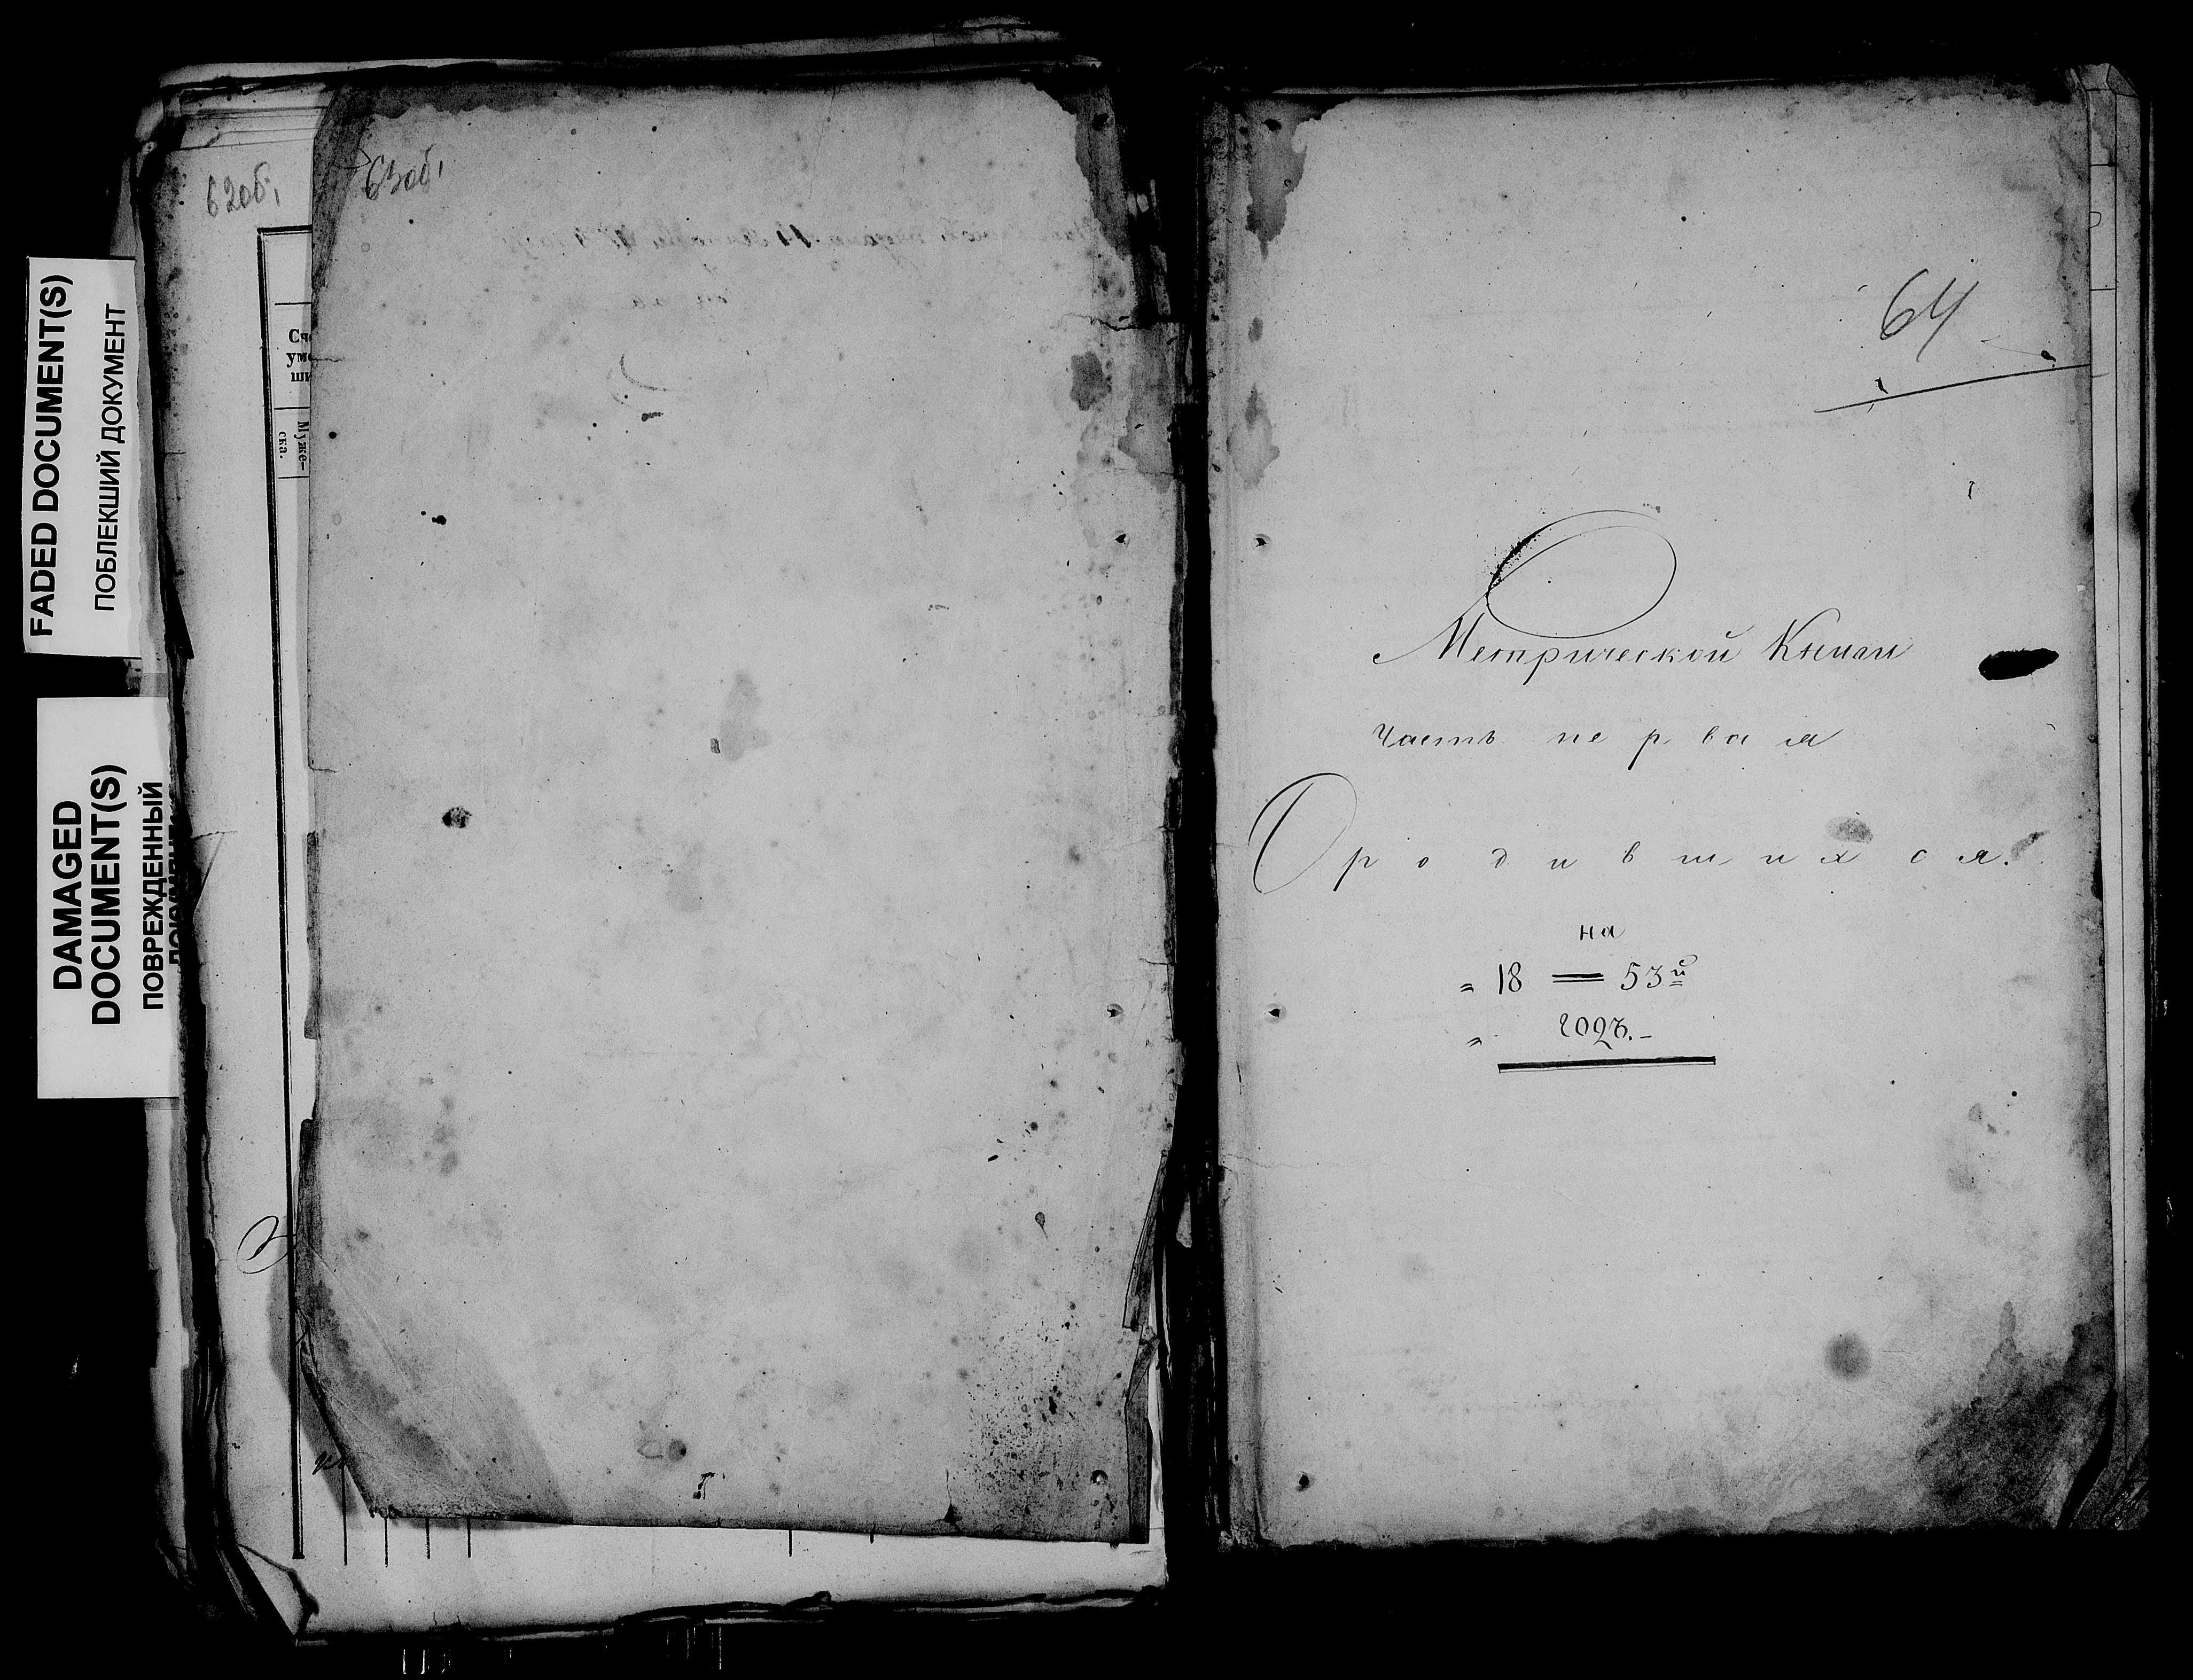 FADED DOCUMENT(S)
ПОБЛЕКШИЙ ДОКУМЕНТ
DAMAGED
DOCUMENT(S)
ПОВРЕЖДЕННЫЙ
ДОКУМЕНТ
62об,
Муже-
ска.
63об,
64
Метрической Книги
Часть первая
О родившихся.
на
„ 18 = 53й
„ годъ.-